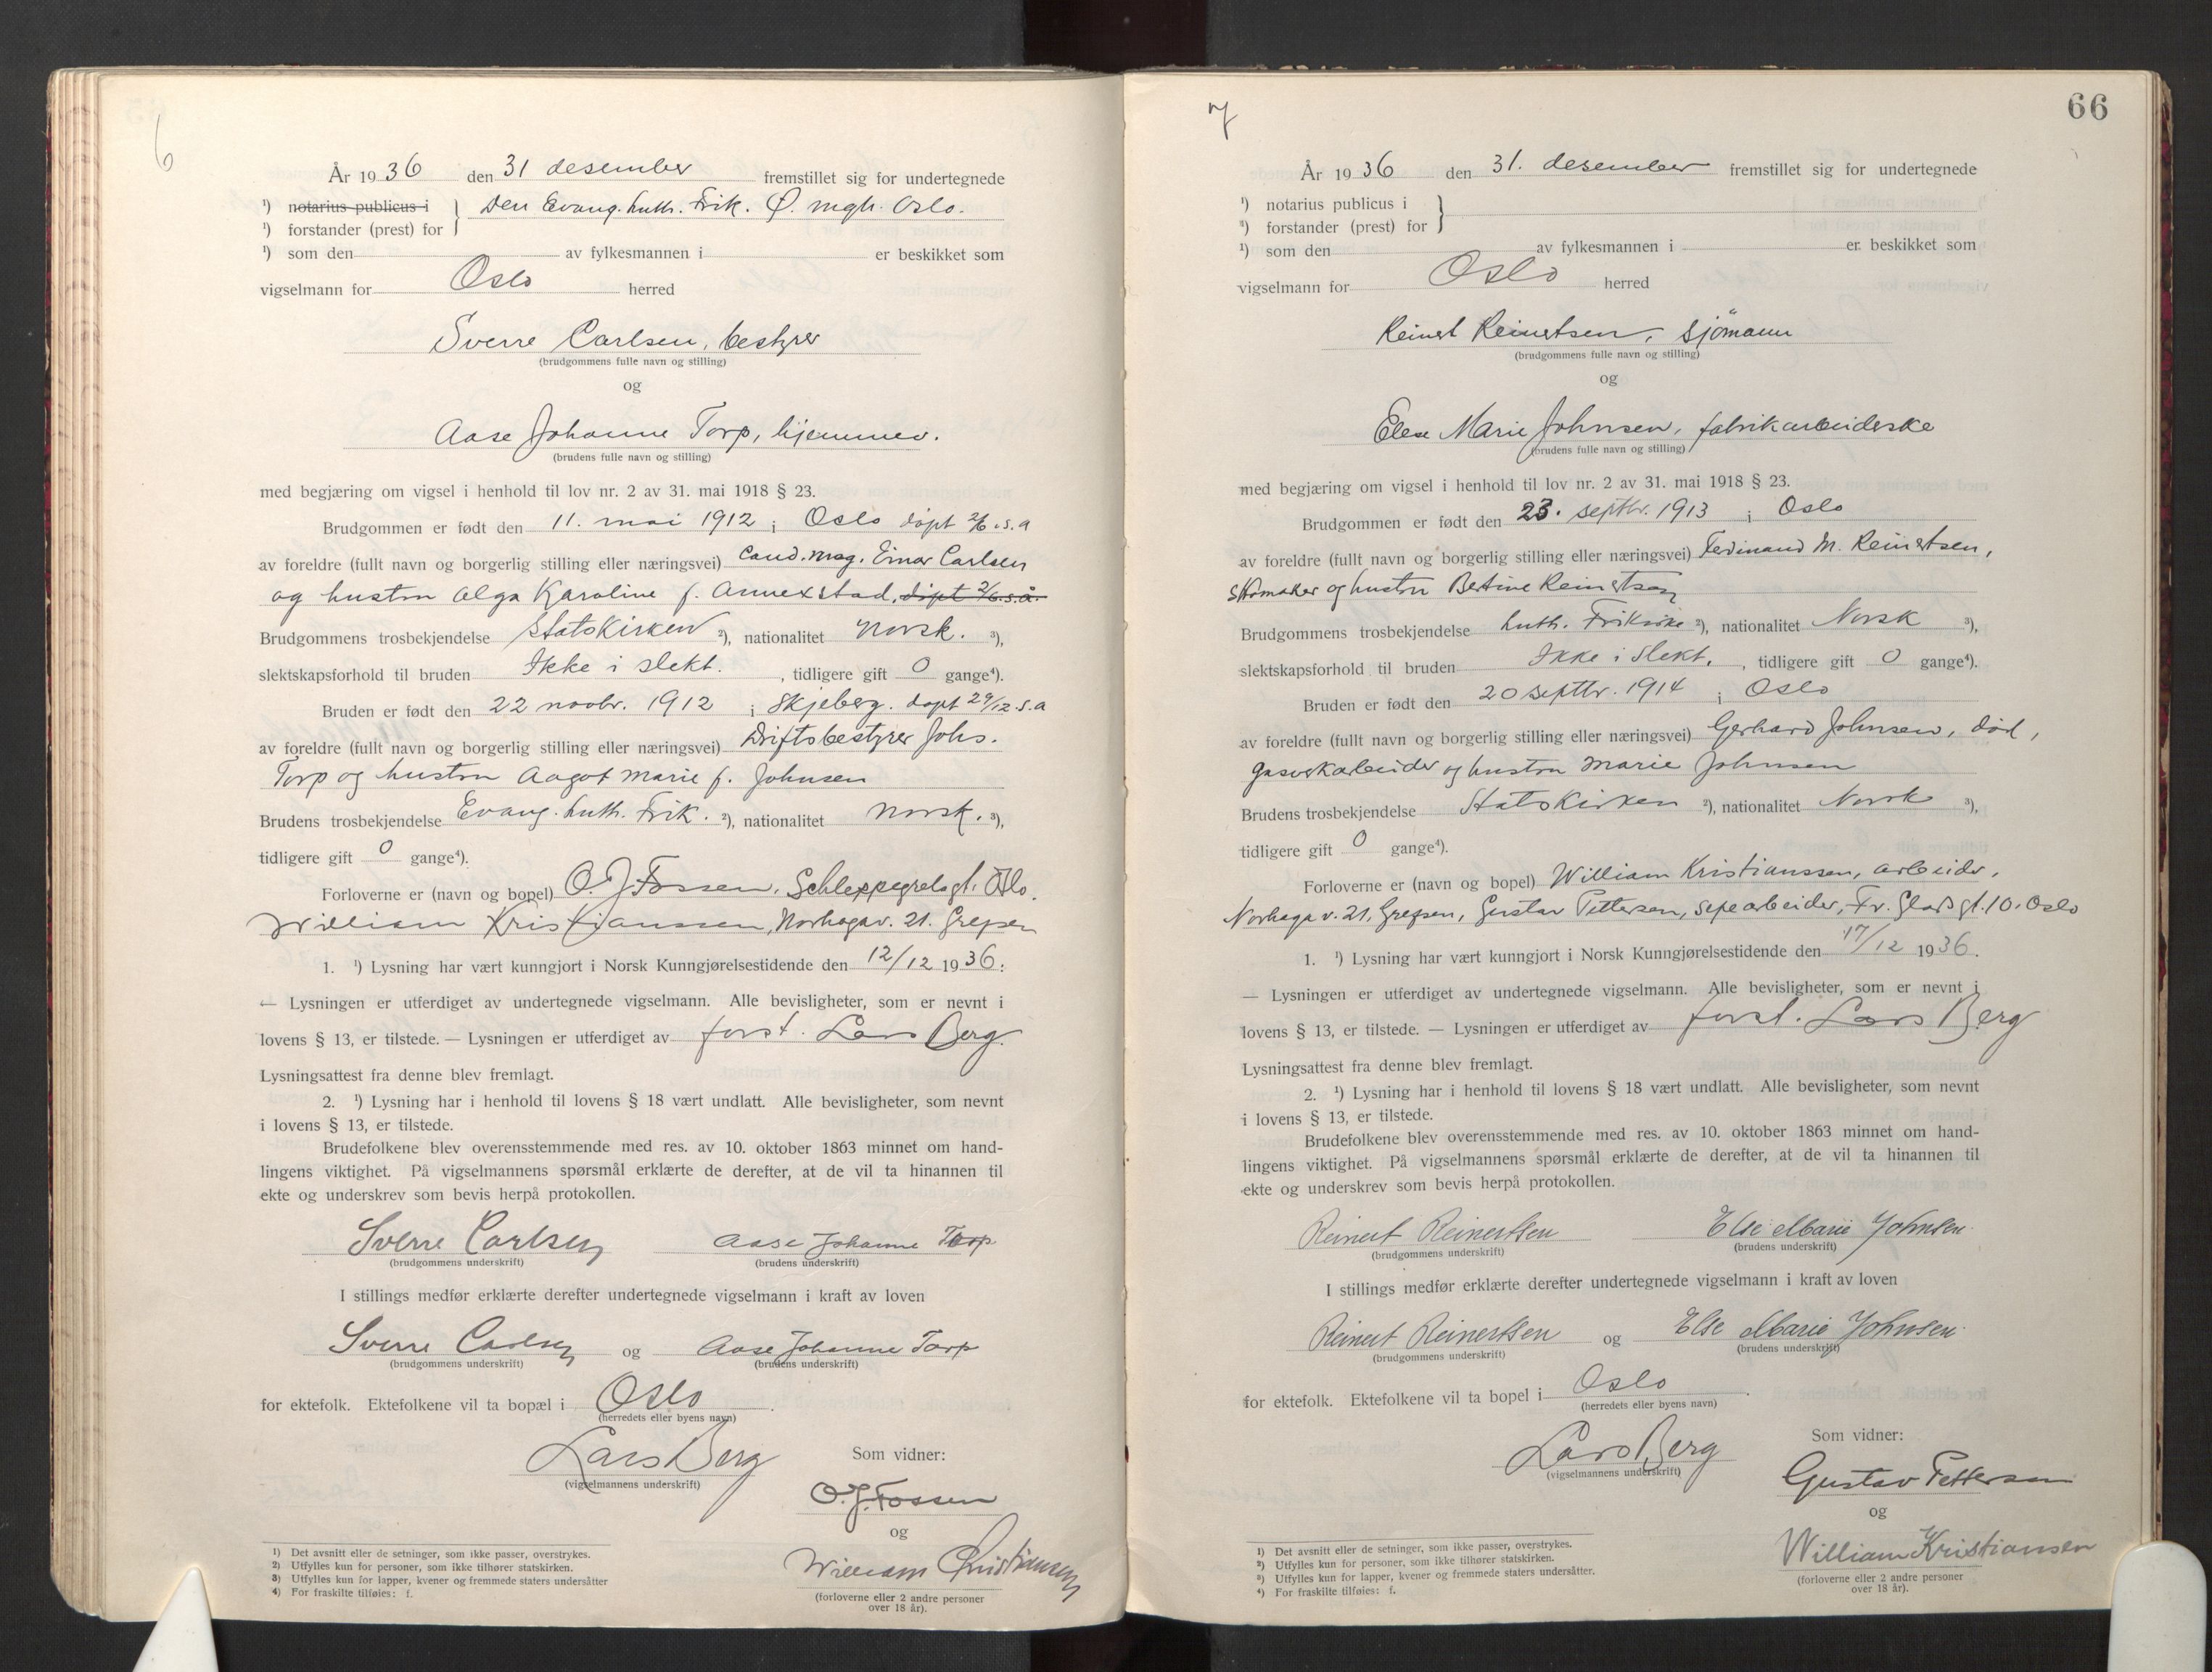 6
År 1936 den 31 desember fremstillet sig for undertegnede
¹) notarius publicus i } Den Evang. Luth. Frik. Ø. mgh. Oslo.
¹) forstander (prest) for
¹) som den av fylkesmannen i er beskikket som
vigselmann for Oslo herred
Sverre Carlsen, bestyrer
(brudgommens fulle navn og stilling)
og
Aase Johanne Torp, hjemmev.
(brudens fulle navn og stilling)
med begjæring om vigsel i henhold til lov nr. 2 av 31. mai 1918 § 23.
Brudgommen er født den 11. mai 1912 i Oslo døpt 2/6 s.a
av foreldre (fullt navn og borgerlig stilling eller næringsvei) Cand. mag. Einar Carlsen
og hustru Olga Karoline f. Annexstad, døpt 2/6. s. å.
Brudgommens trosbekjendelse Statskirken ²), nationalitet Norsk. ³),
slektskapsforhold til bruden Ikke i slekt. , tidligere gift 0 gange⁴).
Bruden er født den 22 novbr. 1912 i Skjeberg. døpt 29/12 s.a
av foreldre (fullt navn og borgerlig stilling eller næringsvei) Driftsbestyrer Johs.
Torp og hustru Aagot Marie f. Johnsen
Brudens trosbekjendelse Evang. Luth. Frik. ²), nationalitet Norsk. ³),
tidligere gift 0 gange⁴).
Forloverne er (navn og bopel) O. J. Fossen, Schleppegrelsgt. Oslo.
William Kristianssen, Norhagav. 21. Grefsen
1. ¹) Lysning har vært kunngjort i Norsk Kunngjørelsestidende den 12/12 1936.
— Lysningen er utferdiget av undertegnede vigselmann. Alle bevisligheter, som er nevnt i
lovens § 13, er tilstede. — Lysningen er utferdiget av forst. Lars Berg.
Lysningsattest fra denne blev fremlagt.
2. ¹) Lysning har i henhold til lovens § 18 vært undlatt. Alle bevisligheter, som nevnt
i lovens § 13, er tilstede.
Brudefolkene blev overensstemmende med res. av 10. oktober 1863 minnet om hand-
lingens viktighet. På vigselmannens spørsmål erklærte de derefter, at de vil ta hinannen til
ekte og underskrev som bevis herpå protokollen.
Sverre Carlsen Aase Johanne Torp
(brudgommens underskrift) (brudens underskrift)
I stillings medfør erklærte derefter undertegnede vigselmann i kraft av loven
Sverre Carlsen og Aase Johanne Torp
(brudgommens underskrift) (brudens underskrift)
for ektefolk. Ektefolkene vil ta bopæl i Oslo.
(herredets eller byens navn)
Lars Berg
(vigselmannens underskrift)
Som vidner:
O. J. Fossen
og
William Christiansen
(forloverne eller 2 andre personer
over 18 år).
¹) Det avsnitt eller de setninger, som ikke passer, overstrykes.
²) Utfylles kun for personer, som ikke tilhører statskirken.
³) Utfylles kun for lapper, kvener og fremmede staters undersåtter
⁴) For fraskilte tilføies: f.
7
66
År 1936 den 31. desember fremstillet sig for undertegnede
¹) notarius publicus i }
¹) forstander (prest) for
¹) som den av fylkesmannen i er beskikket som
vigselmann for Oslo herred
Reinert Reinertsen, sjømann
(brudgommens fulle navn og stilling)
og
Else Marie Johnsen, fabrikarbeiderske
(brudens fulle navn og stilling)
med begjæring om vigsel i henhold til lov nr. 2 av 31. mai 1918 § 23.
Brudgommen er født den 23. septbr. 1913 i Oslo
av foreldre (fullt navn og borgerlig stilling eller næringsvei) Ferdinand M. Reinertsen,
skomaker og hustru Bertine Reinertsen
Brudgommens trosbekjendelse Luth. Frikirke ²), nationalitet Norsk ³),
slektskapsforhold til bruden Ikke i slekt. , tidligere gift 0 gange⁴).
Bruden er født den 20 septbr. 1914 i Oslo
av foreldre (fullt navn og borgerlig stilling eller næringsvei) Gerhard Johnsen, død,
gasverkarbeider og hustru Marie Johnsen
Brudens trosbekjendelse Statskirken ²), nationalitet Norsk ³),
tidligere gift 0 gange⁴).
Forloverne er (navn og bopel) William Kristianssen, arbeider,
Norhaga v. 21, Grefsen, Gustav Pettersen, sepearbeider, Fr. Glads gt. 10. Oslo
1. ¹) Lysning har vært kunngjort i Norsk Kunngjørelsestidende den 17/12 1936.
— Lysningen er utferdiget av undertegnede vigselmann. Alle bevisligheter, som er nevnt i
lovens § 13, er tilstede. — Lysningen er utferdiget av forst. Lars Berg
Lysningsattest fra denne blev fremlagt.
2. ¹) Lysning har i henhold til lovens § 18 vært undlatt. Alle bevisligheter, som nevnt
i lovens § 13, er tilstede.
Brudefolkene blev overensstemmende med res. av 10. oktober 1863 minnet om hand-
lingens viktighet. På vigselmannens spørsmål erklærte de derefter, at de vil ta hinannen til
ekte og underskrev som bevis herpå protokollen.
Reinert Reinertsen Else Marie Johnsen
(brudgommens underskrift) (brudens underskrift)
I stillings medfør erklærte derefter undertegnede vigselmann i kraft av loven
Reinert Reinertsen og Else Marie Johnsen
(brudgommens underskrift) (brudens underskrift)
for ektefolk. Ektefolkene vil ta bopel i Oslo.
(herredets eller byens navn)
Lars Berg
(vigselmannens underskrift)
Som vidner:
Gustav Pettersen
og
William Kristiansen
(forloverne eller 2 andre personer
over 18 år).
¹) Det avsnitt eller de setninger, som ikke passer, overstrykes.
²) Utfylles kun for personer, som ikke tilhører statskirken.
³) Utfylles kun for lapper, kvener og fremmede staters undersåtter.
⁴) For fraskilte tilføies: f.